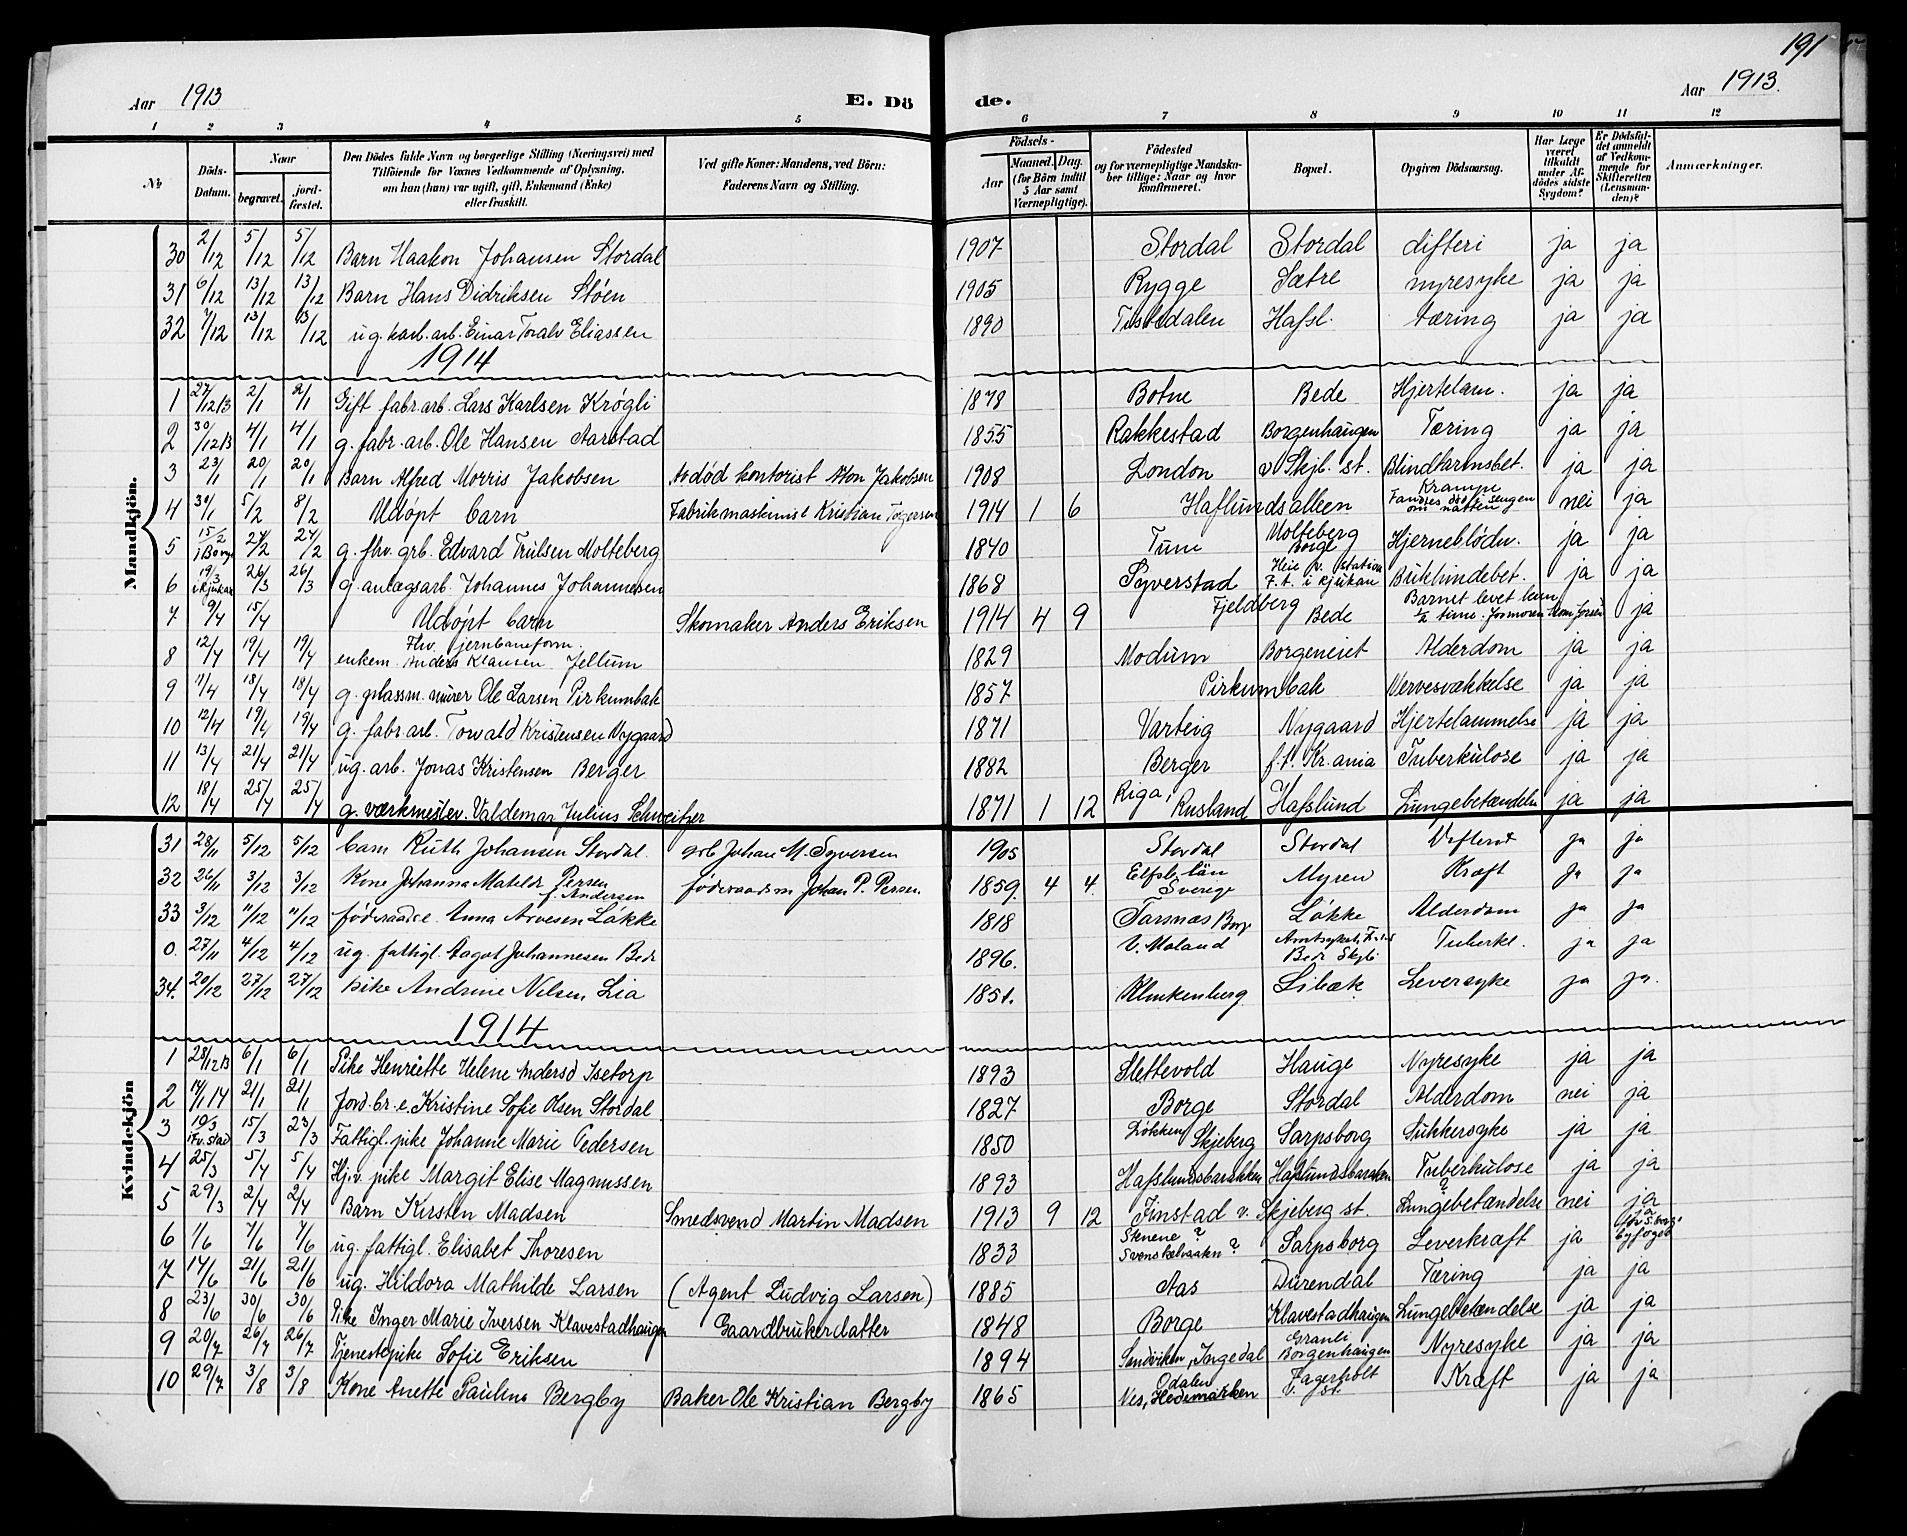 191
Aar 1913
E. Dö
de.
Aar 1913.
1 2 3 4 5 6 7 8 9 10 11 12
No
Döds-Datum.
Naar
begravet.
jordfæstet.
Den Dödes fulde Navn og borgerlige Stilling (Næringsvei) med Tilföiende for Voxnes Vedkommende af Oplysning, om han (hun) var ugift, gift, Enkemand (Enke) eller fraskilt.
Ved gifte Koner: Mandens, ved Börn: Faderens Navn og Stilling.
Födsels-
Aar
Maaned. Dag.
(for Börn indtil 5 Aar samt Værnepligtige).
Födested og for værnepligtige Mandskaber tillige: Naar og hvor konfirmeret.
Bopæl.
Opgiven Dödsaarsag.
Har Læge været tilkaldt under Afdödes sidste Sygdom?
Er Dödsfaldet anmeldt af Vedkommende for Skifteretten (Lensmanden)?
Anmærkninger.
Mandkjön.
30 2/12 5/12 5/12 Barn Haakon Johansen Stordal 1907 Stordal Stordal difteri ja ja
31 6/12 13/12 13/12 Barn Hans Didriksen Støen 1905 Rygge Sætre nyresyke ja ja
32 7/12 13/12 13/12 ug. karl. arb. Einar Toralv Eliassen 1890 Tistedalen Hafsl. tæring ja ja
1914
1 27/12 13 2/1 2/1 Gift fabr. arb. Lars Karlsen Krøgli 1878 Botne Bede Hjertelam. ja ja
2 30/12 13 4/1 4/1 g. fabr. arb. Ole Hansen Aarstad 1855 Rakkestad Borgenhaugen Tæring ja ja
3 23/1 20/1 20/1 Barn Alfred Morris Jakobsen Avdød kontorist Aton Jakobsen 1908 London v Skjb. st. Blindtarmsbet. ja ja
4 30/1 5/2 8/2 Udøpt barn Fabrikmaskinist Kristian Torgersen 1914 1 6 Haflundsalleen Krampe Fandtes død i sengen om natten nei ja
5 15/2 i Borge 24/2 24/2 g. fhv. grb. Edvard Trulsen Molteberg 1840 Tune Molteberg Borge Hjerneblödn. ja ja
6 19/3 i Rjukan 26/3 26/3 g. anlægsarb. Johannes Johannesen 1868 Syverstad Heie v. station F. t. i Rjukan Bukhindebet. ja ja
7 9/4 15/4 Udøpt barn Skomaker Anders Eriksen 1914 4 9 Fjeldberg Bede Barnet levet kun 1/2 time. ja
8 12/4 19/4 19/4 enkem. Fhv. jernbaneform. Anders Klausen Jellum 1829 Modum Borgeneiet Alderdom ja ja
9 11/4 18/4 18/4 g. grlassm. murer Ole Larsen Pirkumbak 1857 Pirkumbak Nervesvækkelse ja ja
10 12/4 19/4 19/4 g. fabr. arb. Torvald Kristensen Nygaard 1871 Varteig Nygaard Hjertelammelse ja ja
11 13/4 21/4 21/4 ug. arb. Jonas Kristensen Berger 1882 Berger f.t. Kr.ania Tuberkulose ja ja
12 18/4 25/4 25/4 g. værkmester Valdemar Julius Schweitzer 1871 1 12 Riga, Rusland Hafslund Lungebetændelse ja ja
Kvindekjön
31 28/11 5/12 5/12 barn Ruth Johansen Stordal. grb Johan M. Syversen 1905 Stordal Stordal Difterit ja ja
32 26/11 3/12 3/12 Kone Johanna Matilde Persen f. Andersen föderaadsm Johan P. Persen 1859. 4 4. Elfsb. län Sverige Myren Kræft ja ja
33 3/12 11/12 11/12 föderaadse. Anna Arvesen Løkke 1818 Tarsnæs Borg Løkke Alderdom ja ja
0. 27/11 4/12 4/12 ug. fattigl. Aagot Johannesen Bede 1896. V. Moland Bede Skjb Tuberkl. ja ja
34. 20/12 27/12 27/12 Pike Andrine Nilsen Lia 1851. Klinkenberg Libæk Leversyke ja ja.
1914
1 28/12 13 6/1 6/1 Pike Henriette Helene Andersd Isetorp 1893 Slettevold Hauge Nyresyke ja ja
2 14/1 14 21/1 21/1 Jord. br. e. Kristine Sofie Olsen Stordal. 1827 Borge Stordal Alderdom nei ja
3 10/3 i Fr.stad 15/3 23/3 Fattigl. pike Johanne Marie Pedersen 1850 Løkken Skjeberg Sarpsborg Sukkersyke ja ja
4 25/3 5/4 5/4 Hjv. pike Margit Elise Magnussen 1893 Hafslundsbarakken Hafslundsbarakken Tuberkulose ja ja
5 29/3 2/4 2/4 Barn Kirsten Madsen Smedsvend Martin Madsen 1913 9 12 Finstad v. Skjeberg st. ? Lungebetændelse nei ja
6 1/6 7/6 7/6 ug. fattigl. Elisabet Thoresen 1833 Stenene ? Sarpsborg Leverkræft ja ja byfoged
7 14/6 21/6 21/6 ug. Hildora Mathilde Larsen (Agent Ludvig Larsen) 1885 Aas Durendal Tæring ja ja
8 23/6 30/6 30/6 Pike Inger Marie Iversen Klavestadhaugen Gaardbrukerdatter 1848 Borge Klavestadhaugen Lungebetændelse ja ja
9 20/7 26/7 26/7 Tjenestepike Sofie Eriksen 1894 Sandviken, Ingedal Granli Borgenhaugen Nyresyke ja ja
10 29/7 3/8 3/8 Kone Anette Pauline Bergby Baker Ole Kristian Bergby 1865 Odalen Nes, Hedemarken Fagerholt v. st. Kræft ja ja